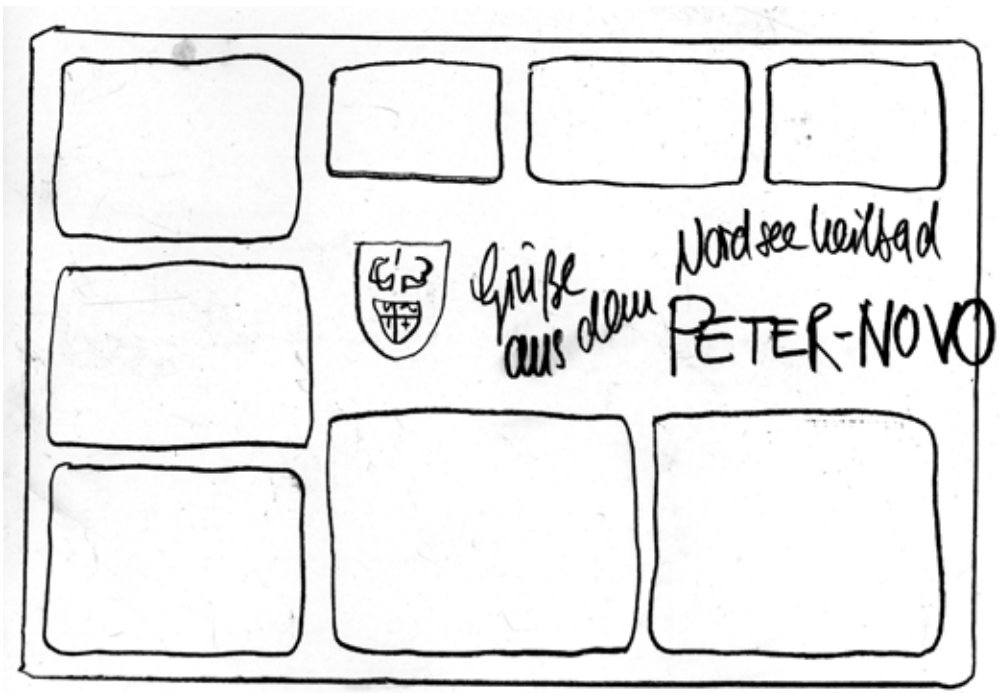 Grüße
aus dem
Nordseeheilbad
PETER-NOVO